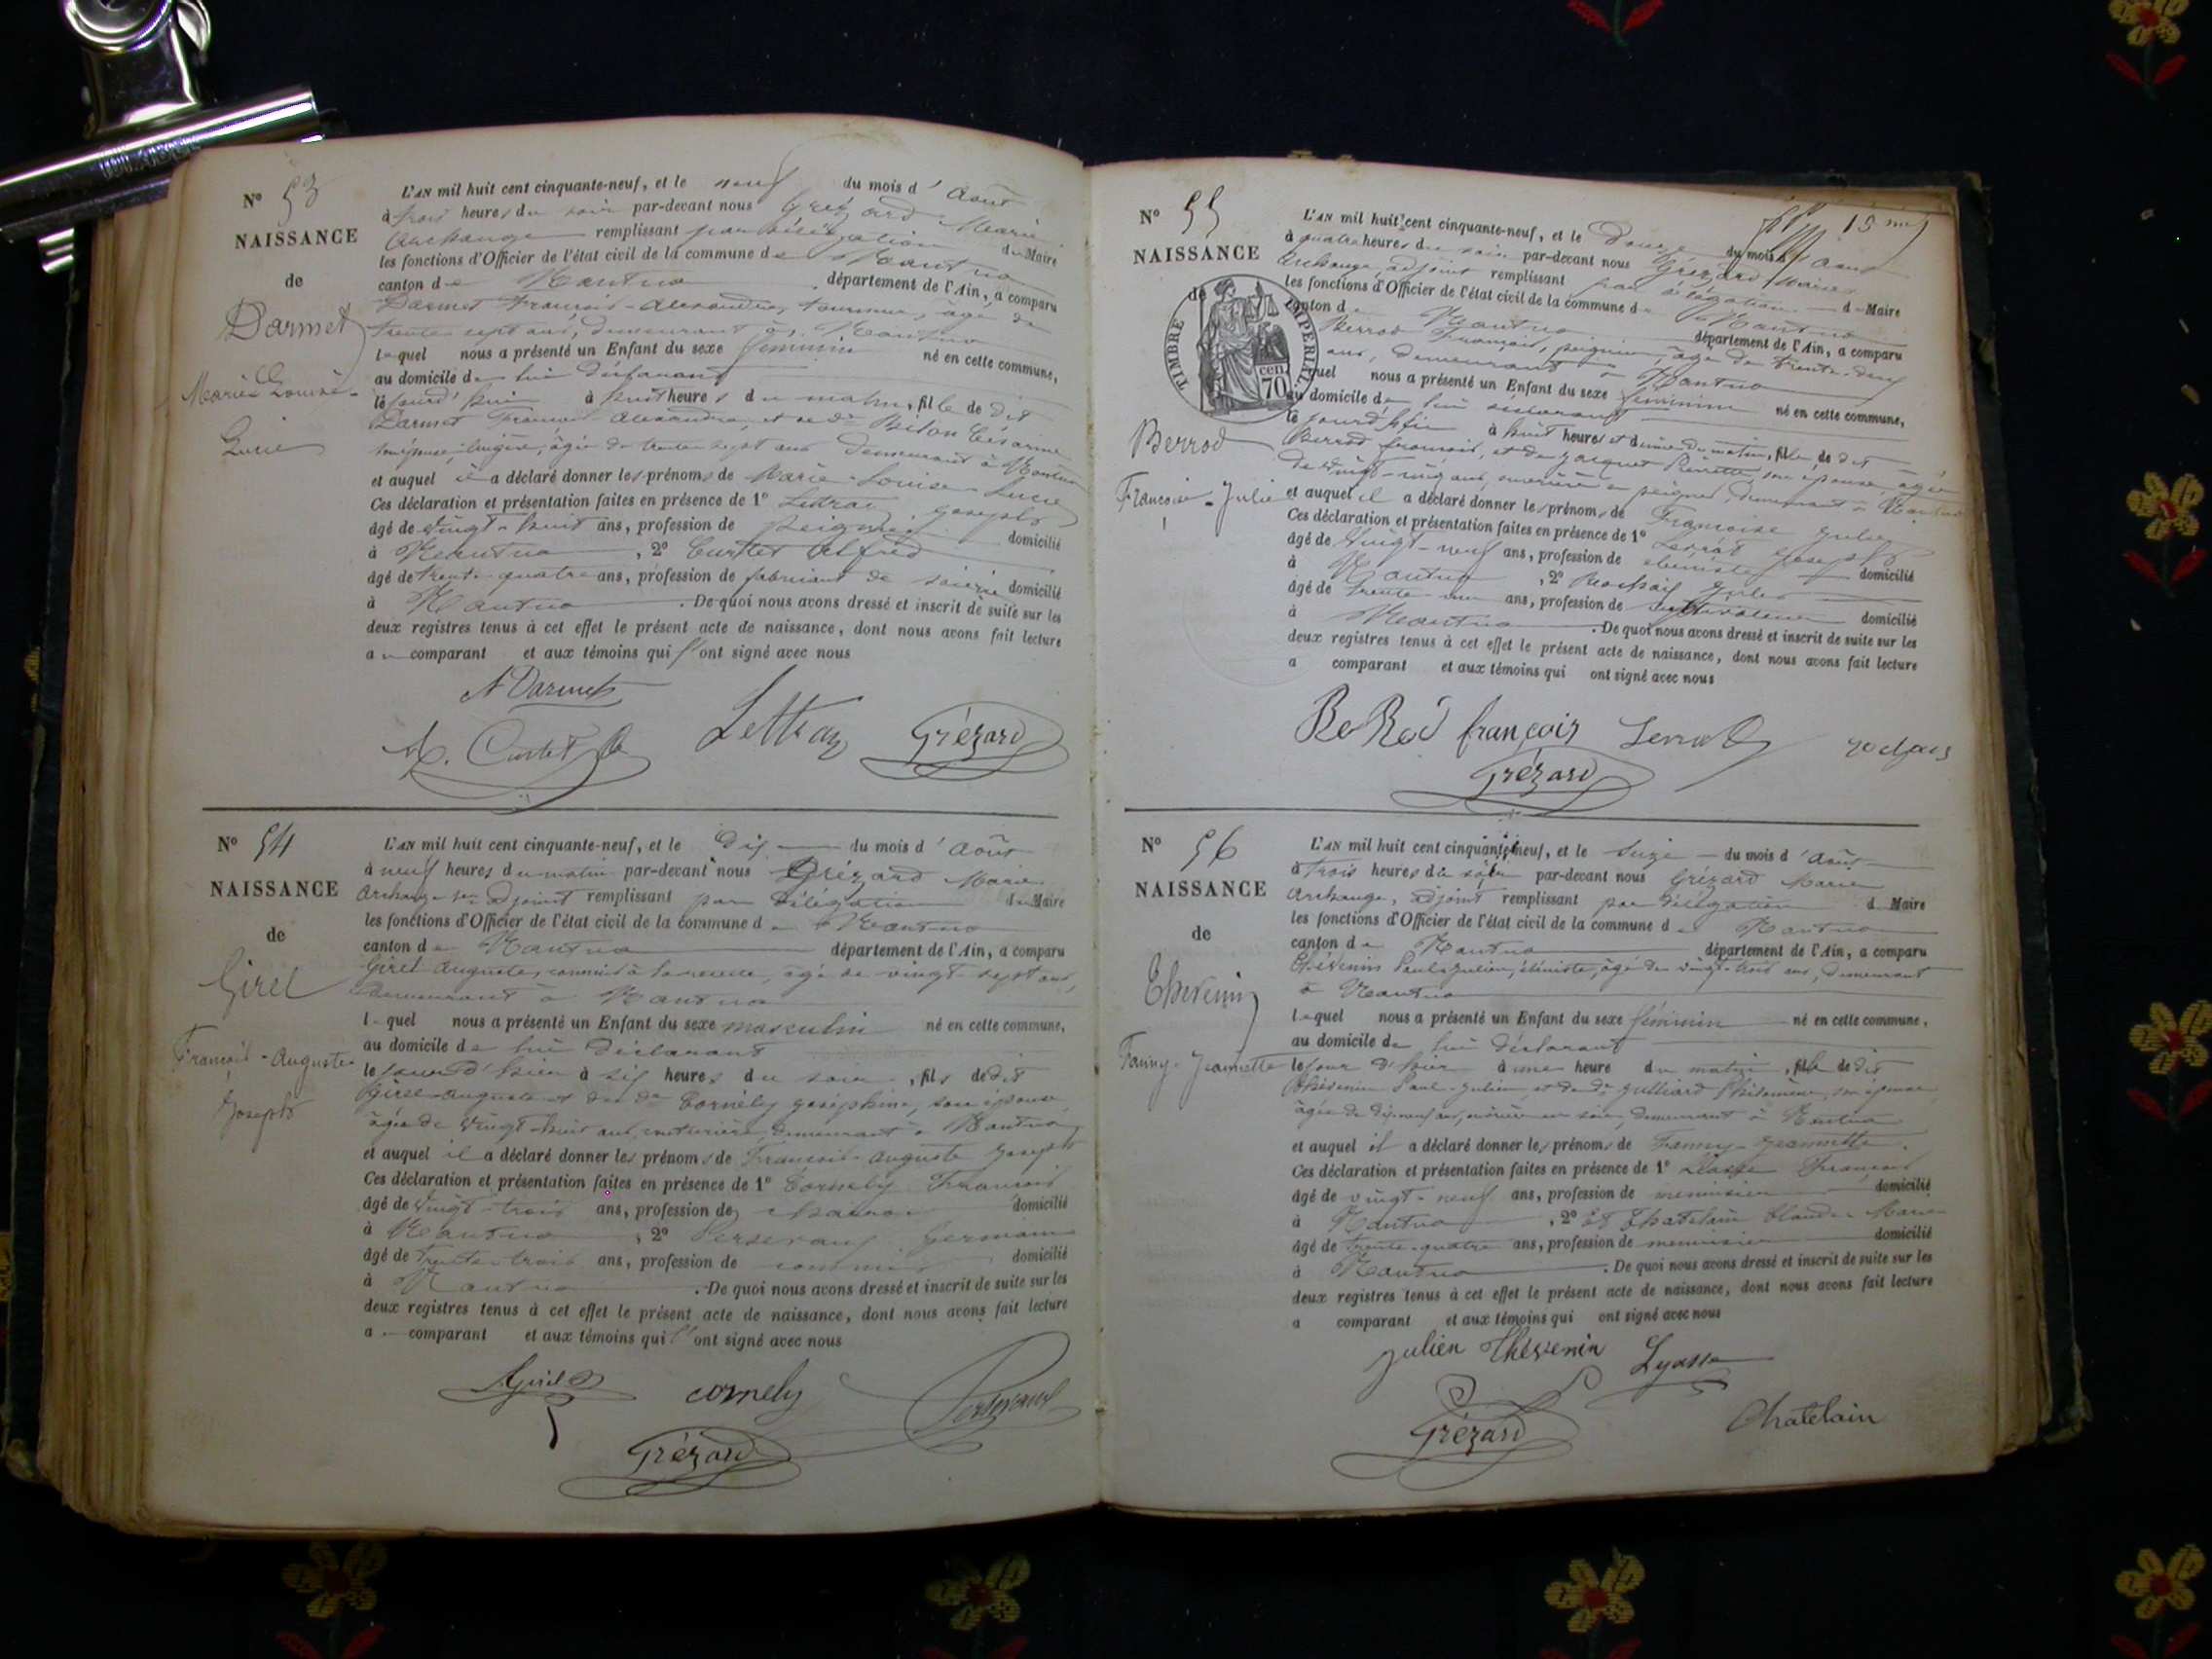 N° 53
NAISSANCE
de
Darmet
Marie-Louise-
Lucie
L'AN mil huit cent cinquante-neuf, et le neuf du mois d'Août
à trois heures du soir par-devant nous Grézard Marie
Archange remplissant par délégation du Maire
les fonctions d'Officier de l'état civil de la commune de Nantua
canton de Nantua département de l'Ain, a comparu
Darmet François-Alexandre, tourneur, âgé de
trente sept ans, demeurant à Nantua
lequel nous a présenté un Enfant du sexe féminin né en cette commune,
au domicile de lui déclarant
le jourd'hui à huit heures du matin, fille de dit
Darmet François Alexandre, et de de Césarine
son épouse, lingère, âgée de trente sept ans demeurant à Nantua
et auquel il a déclaré donner les prénoms de Marie-Louise-Lucie
Ces déclaration et présentation faites en présence de 1° Joseph
âgé de vingt-huit ans, profession de domicilié
à Nantua, 2° Curtet Alfred
âgé de trente-quatre ans, profession de fabricant de soierie domicilié
à Nantua. De quoi nous avons dressé et inscrit de suite sur les
deux registres tenus à cet effet le présent acte de naissance, dont nous avons fait lecture
au comparant et aux témoins qui l'ont signé avec nous
A Darmet
A. Curtet Lettraz Grézard
N° 54
NAISSANCE
de
Girel
François-Auguste-
Joseph
L'AN mil huit cent cinquante-neuf, et le dix du mois d'Août
à neuf heures du matin par-devant nous Grézard Marie
Archange adjoint remplissant par délégation du Maire
les fonctions d'Officier de l'état civil de la commune de Nantua
canton de Nantua département de l'Ain, a comparu
Girel Auguste, commis à la recette, âgé de vingt sept ans,
demeurant à Nantua
lequel nous a présenté un Enfant du sexe masculin né en cette commune,
au domicile de lui déclarant
le jour d'hier à six heures du soir, fils de dit
Girel Auguste et de de Cornély Joséphine, son épouse,
âgée de vingt-huit ans, couturière, demeurant à Nantua
et auquel il a déclaré donner les prénoms de François-Auguste Joseph
Ces déclaration et présentation faites en présence de 1° Cornély François
âgé de vingt-trois ans, profession de domicilié
à Nantua, 2° Germain
âgé de trente-trois ans, profession de commis domicilié
à Nantua. De quoi nous avons dressé et inscrit de suite sur les
deux registres tenus à cet effet le présent acte de naissance, dont nous avons fait lecture
au comparant et aux témoins qui l'ont signé avec nous
A Girel cornely
Grézard
15 me
N° 55
NAISSANCE
de
TIMBRE IMPERIAL
70 cen
Berrod
Françoise-Julie
L'AN mil huit cent cinquante-neuf, et le Douze du mois d'Août
à quatre heures du soir par-devant nous Grézard Marie
Archange, adjoint remplissant par délégation du Maire
les fonctions d'Officier de l'état civil de la commune de Nantua
canton de Nantua département de l'Ain, a comparu
Berrod François, peignier, âgé de trente-deux
ans, demeurant à Nantua
lequel nous a présenté un Enfant du sexe féminin né en cette commune,
au domicile de lui déclarant
le jourd'hui à huit heures et demie du matin, fille de dit
Berrod François, et de Jacquet Pierrette, son épouse, âgée
de vingt-cinq ans, ouvrière en peignes, demeurant à Nantua
et auquel il a déclaré donner les prénoms de Françoise Julie
Ces déclaration et présentation faites en présence de 1° Joseph
âgé de vingt-neuf ans, profession de ébéniste domicilié
à Nantua, 2° Jules
âgé de trente-un ans, profession de cultivateur domicilié
à Nantua. De quoi nous avons dressé et inscrit de suite sur les
deux registres tenus à cet effet le présent acte de naissance, dont nous avons fait lecture
a comparant et aux témoins qui ont signé avec nous
BeRod françois
Grézard
N° 56
NAISSANCE
de
Thevenin
Fanny-Jeannette
L'AN mil huit cent cinquante-neuf, et le seize du mois d'Août
à trois heures du soir par-devant nous Grézard Marie
Archange, adjoint remplissant par délégation d Maire
les fonctions d'Officier de l'état civil de la commune de Nantua
canton de Nantua département de l'Ain, a comparu
Thévenin Paul-Julien, ébéniste, âgé de vingt-trois ans, demeurant
à Nantua
lequel nous a présenté un Enfant du sexe féminin né en cette commune,
au domicile de lui déclarant
le jour d'hier à une heure du matin, fille de dit
Thévenin Paul-Julien, et de de Julliard Philomène, son épouse
âgée de dix-neuf ans, ouvrière en soie, demeurant à Nantua
et auquel il a déclaré donner les prénoms de Fanny-Jeannette.
Ces déclaration et présentation faites en présence de 1° François
âgé de vingt-neuf ans, profession de menuisier domicilié
à Nantua, 2° Et Chatelain Claude-Marie
âgé de trente-quatre ans, profession de menuisier domicilié
à Nantua. De quoi nous avons dressé et inscrit de suite sur les
deux registres tenus à cet effet le présent acte de naissance, dont nous avons fait lecture
a comparant et aux témoins qui ont signé avec nous
Julien Thévenin Lyasse
Grézard Chatelain